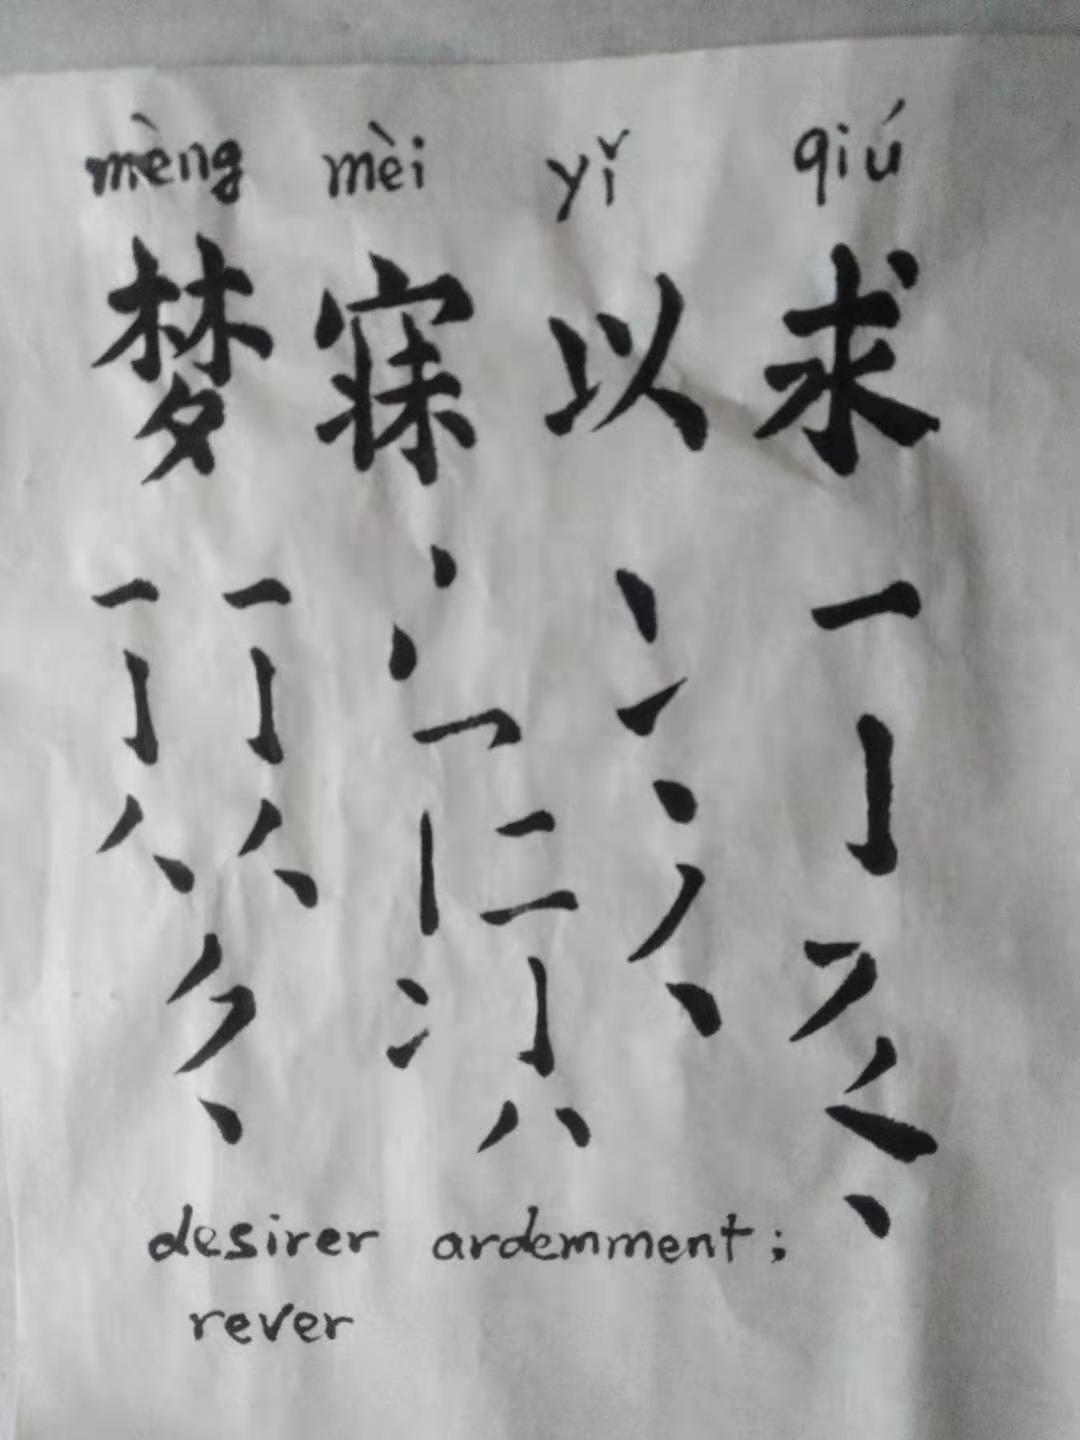 mèng mèi yǐ qiú
梦寐以求
desirer ardemment;
rever